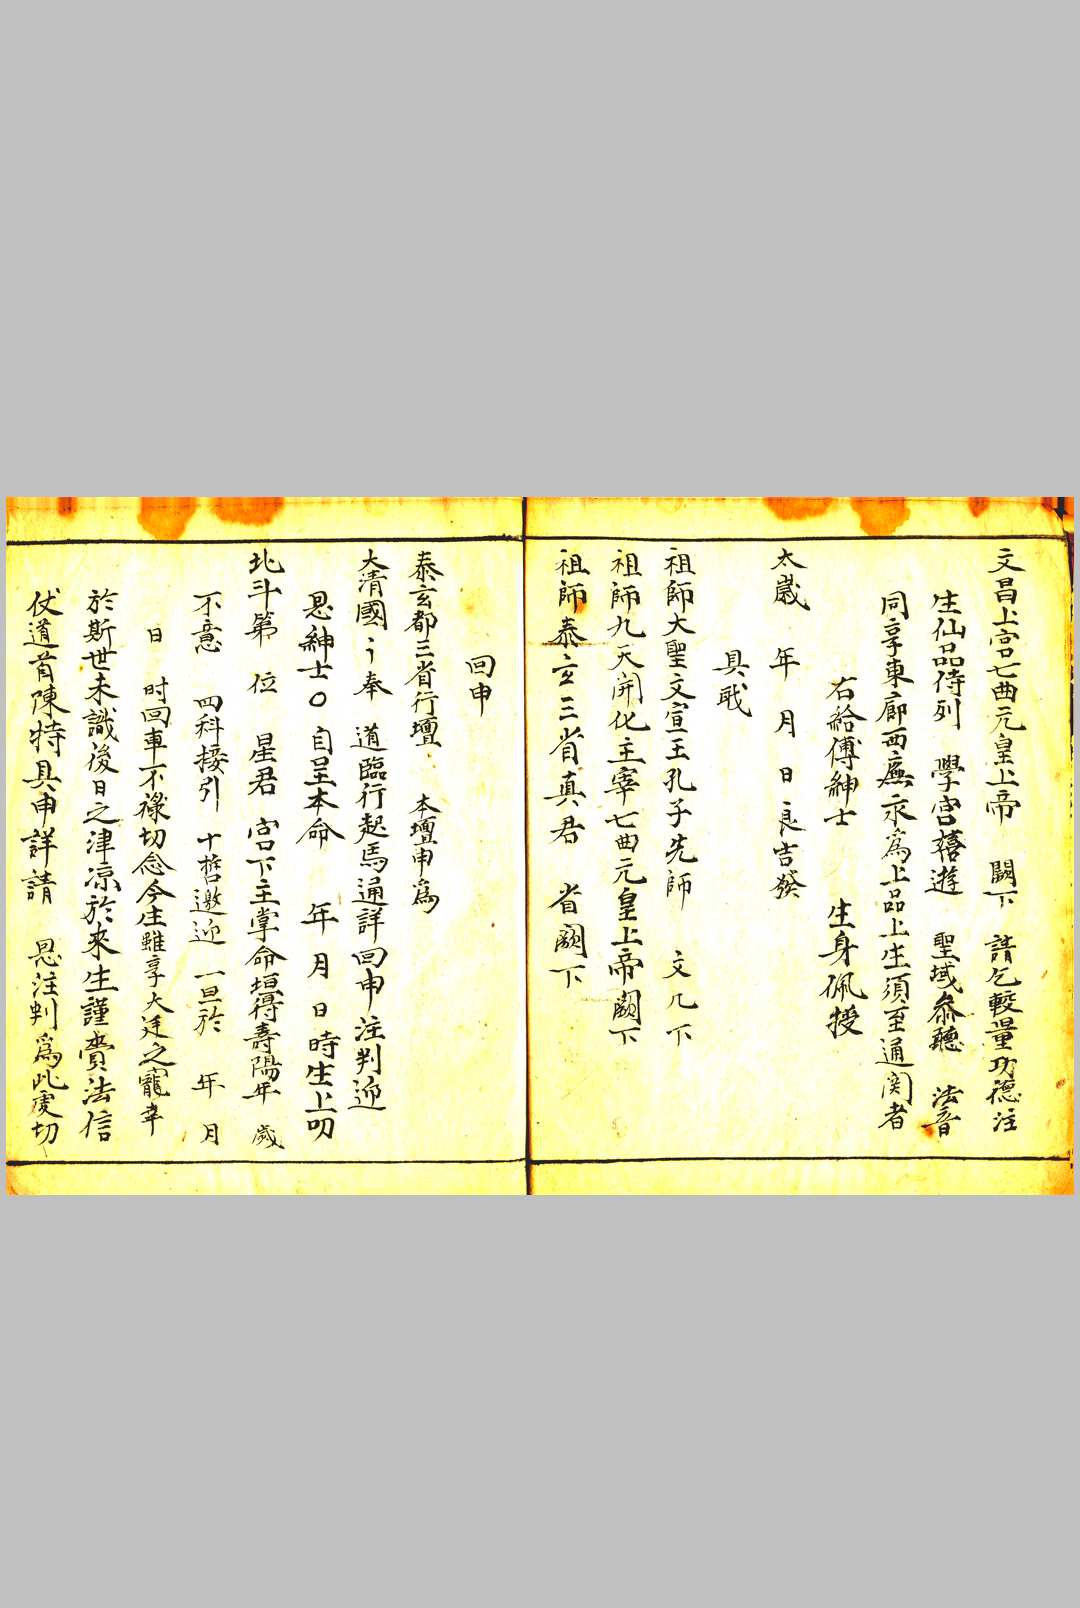 文昌上宮七曲元皇上帝 闕下 請乞較量功德注
生仙品侍列 學宮嬉遊 聖域叅聽 法音
同享東廊西廡永爲上品上生須至通関者
右給傅紳士 生身佩授
太歲 年 月 日良吉發
具戢
祖師大聖文宣王孔子先師 文几下
祖師九天開化主宰七曲元皇上帝闕下
祖師泰玄三省真君 省闕下
回申
泰玄都三省行壇 本壇申爲
大清國 奉 道臨行起焉通詳回申注判迎
恩紳士〇 自呈本命 年 月 日時生上叨
北斗第 位 星君 宮下主掌命垣得壽陽年 歲
不意 四科接引 十哲邀迎 一旦於 年 月
日 时回車不祿切念今生雖享大廷之寵幸
於斯世未識後日之津凉於来生謹賫法信
仗道首陳特具申詳請 恩注判爲此虔切